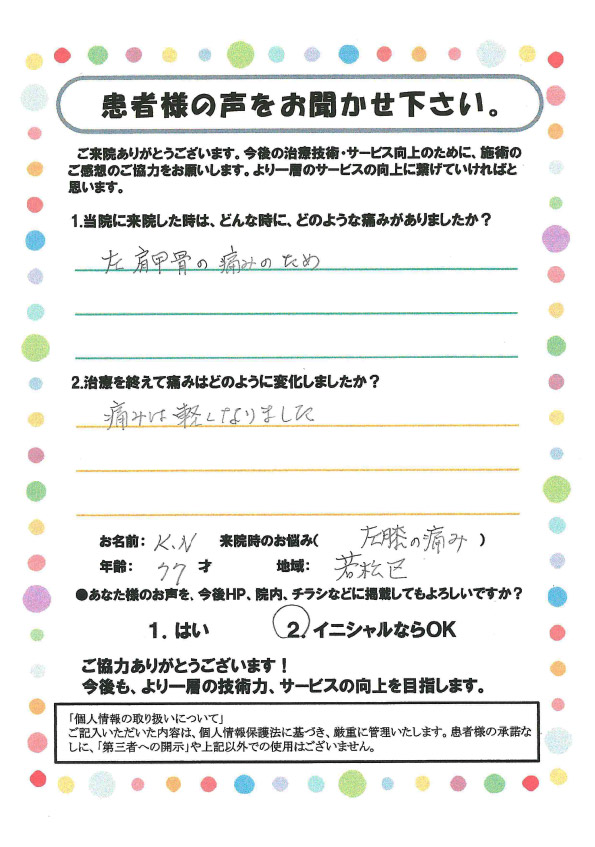 患者様の声をお聞かせ下さい。
ご来院ありがとうございます。今後の治療技術・サービス向上のために、施術の
ご感想のご協力をお願いします。より一層のサービスの向上に繋げていければと
思います。
1.当院に来院した時は、どんな時に、どのような痛みがありましたか？
左肩甲骨の痛みのため
2.治療を終えて痛みはどのように変化しましたか？
痛みは軽くなりました
お名前： K.N 来院時のお悩み( 左膝の痛み )
年齢： 77 才 地域： 若松区
●あなた様のお声を、今後HP、院内、チラシなどに掲載してもよろしいですか？
1. はい 2. イニシャルならOK
ご協力ありがとうございます！
今後も、より一層の技術力、サービスの向上を目指します。
「個人情報の取り扱いについて」
ご記入いただいた内容は、個人情報保護法に基づき、厳重に管理いたします。患者様の承諾な
しに、「第三者への開示」や上記以外での使用はございません。